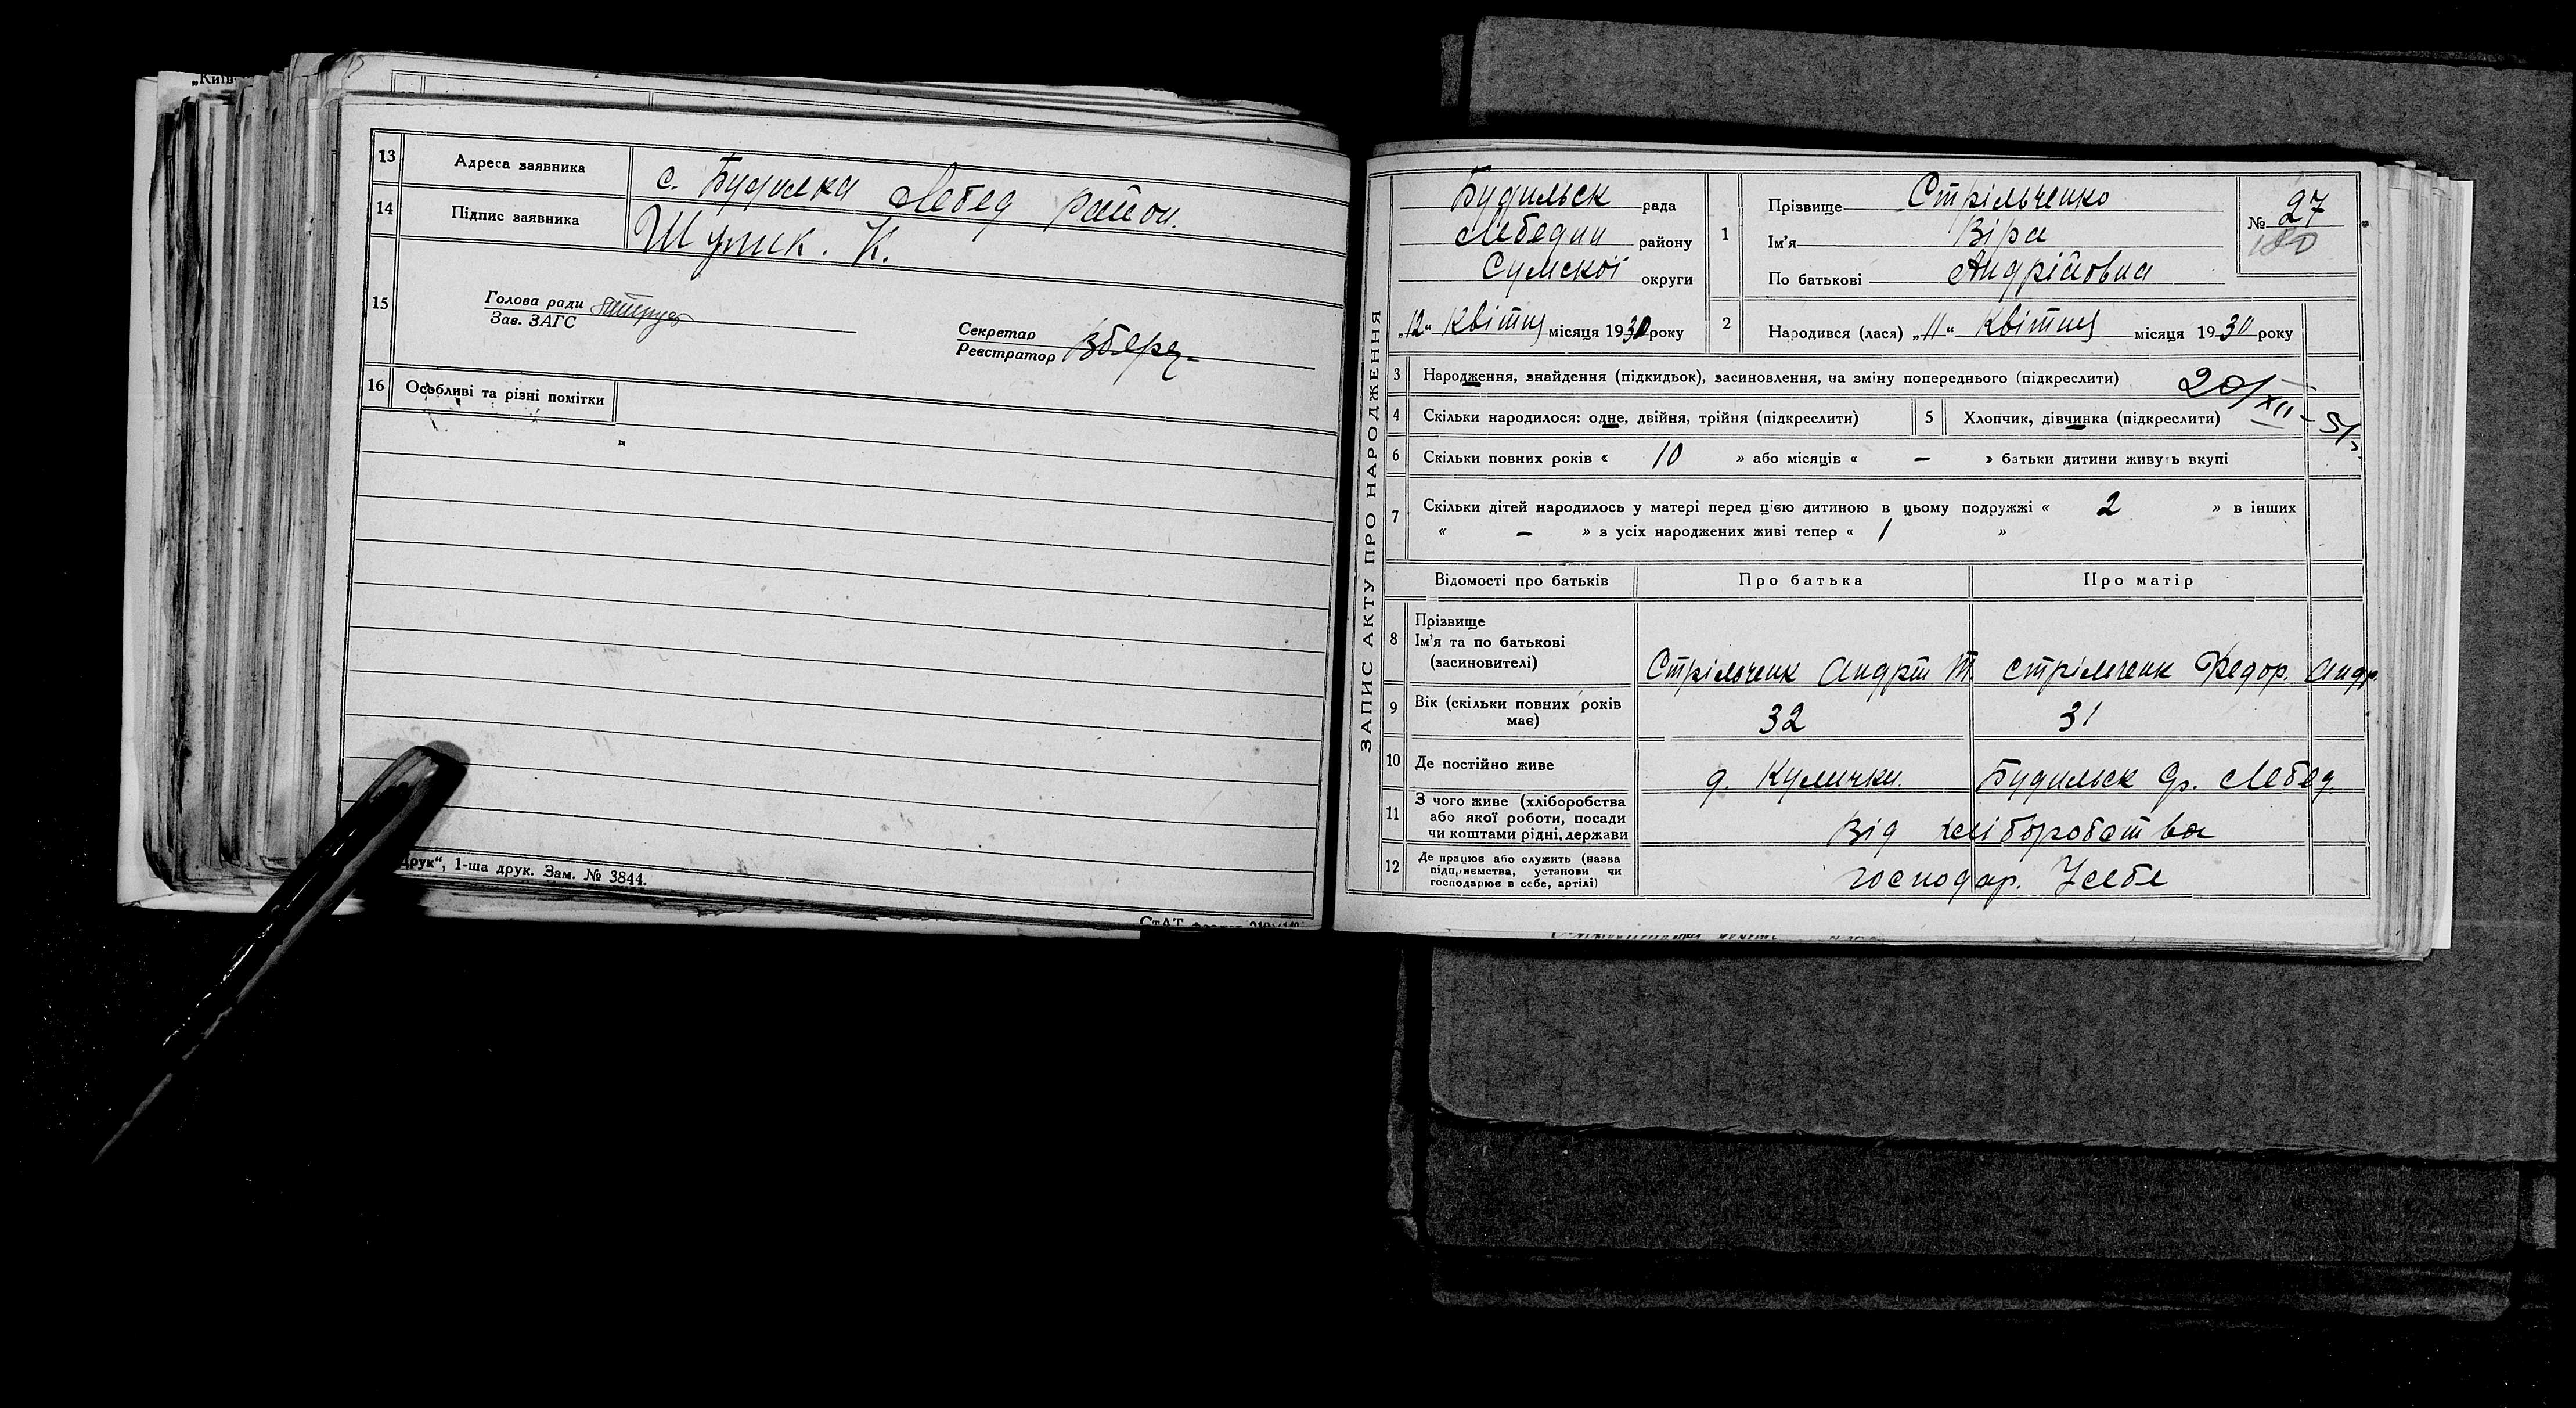 „Київ
13 Адреса заявника с. Будилка Лебед район.
14 Підпис заявника Шулик. К.
15 Голова ради
Зав. ЗАГС
Секретар
Реєстратор
16 Особливі та різні помітки
Друк", 1-ша друк. Зам. № 3844.
ЗАПИС АКТУ ПРО НАРОДЖЕННЯ
Будильск рада
Лебедин району
Сумскої округи
„12" Квітня місяця 1930 року
1 Прізвище Стрільченко
Ім'я Віра
По батькові Андрійовна
№ 27
180
2 Народився (лася) „11" Квітня місяця 1930 року
3 Народження, знайдення (підкидьок), засиновлення, на зміну попереднього (підкреслити)
20/XII-51
4 Скільки народилося: одне, двійня, трійня (підкреслити) 5 Хлопчик, дівчинка (підкреслити)
6 Скільки повних років « 10 » або місяців « – » батьки дитини живуть вкупі
7 Скільки дітей народилось у матері перед ц'єю дитиною в цьому подружжі « 2 » в інших
« – » з усіх народжених живі тепер « 1 »
Відомості про батьків Про батька Про матір
8 Прізвище
Ім'я та по батькові
(засиновителі) Стрільченк Андрій Т. Стрільченк Федор. Андр.
9 Вік (скільки повних років
має) 32 31
10 Де постійно живе д. Кулички. Будильск Ср. Лебед.
11 З чого живе (хліборобства
або якої роботи, посади
чи коштами рідні, держави Від хліборобства
12 Де працює або служить (назва
підприємства, установи чи
господарює в себе, артілі) господар. Усебе